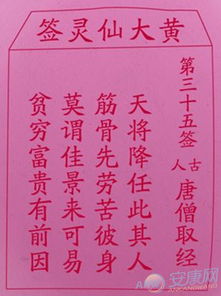 黄大仙灵签
第三十五签
古人
唐僧取经
天将降任此其人
筋骨先劳苦彼身
莫谓佳景来可易
贫穷富贵有前因
安康网